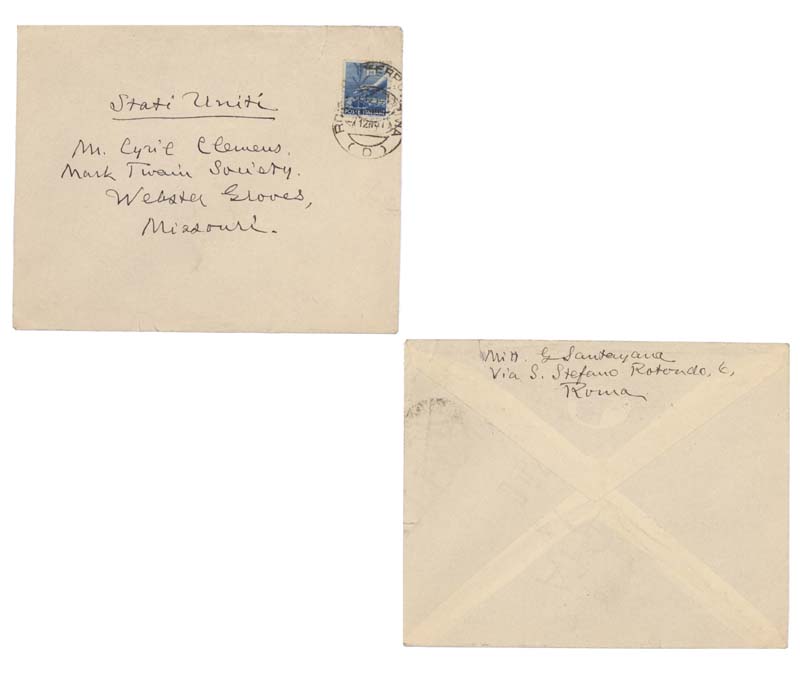 Stati Uniti
Mr. Cyril Clemens.
Mark Twain Society.
Webster Groves,
Missouri.
POSTE ITALIANE
(D)
Mitt. G Santayana
Via S. Stefano Rotondo, 6,
Roma